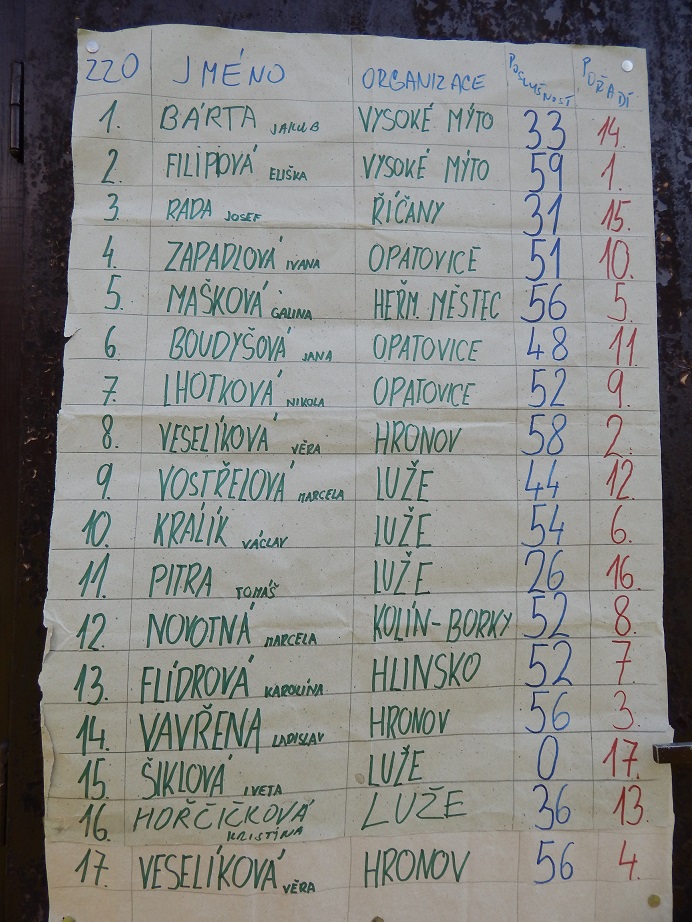 220 JMÉNO ORGANIZACE POSLUŠNOST POŘADÍ
1. BÁRTA JAKUB VYSOKÉ MÝTO 33 14.
2. FILIPIOVÁ ELIŠKA VYSOKÉ MÝTO 59 1.
3. RADA JOSEF ŘÍČANY 31 15.
4. ZAPADLOVÁ IVANA OPATOVICE 51 10.
5. MAŠKOVÁ GALINA HEŘM. MĚSTEC 56 5.
6. BOUDYŠOVÁ JANA OPATOVICE 48 11.
7. LHOTKOVÁ NIKOLA OPATOVICE 52 9.
8. VESELÍKOVÁ VĚRA HRONOV 58 2.
9. VOSTŘELOVÁ MARCELA LUŽE 44 12.
10. KRALÍK VÁCLAV LUŽE 54 6.
11. PITRA TOMÁŠ LUŽE 26 16.
12. NOVOTNÁ MARCELA KOLÍN-BORKY 52 8.
13. FLÍDROVÁ KAROLÍNA HLINSKO 52 7.
14. VAVŘENA LADISLAV HRONOV 56 3.
15. ŠIKLOVÁ IVETA LUŽE 0 17.
16. HOŘČIČKOVÁ KRISTÍNA LUŽE 36 13.
17. VESELÍKOVÁ VĚRA HRONOV 56 4.